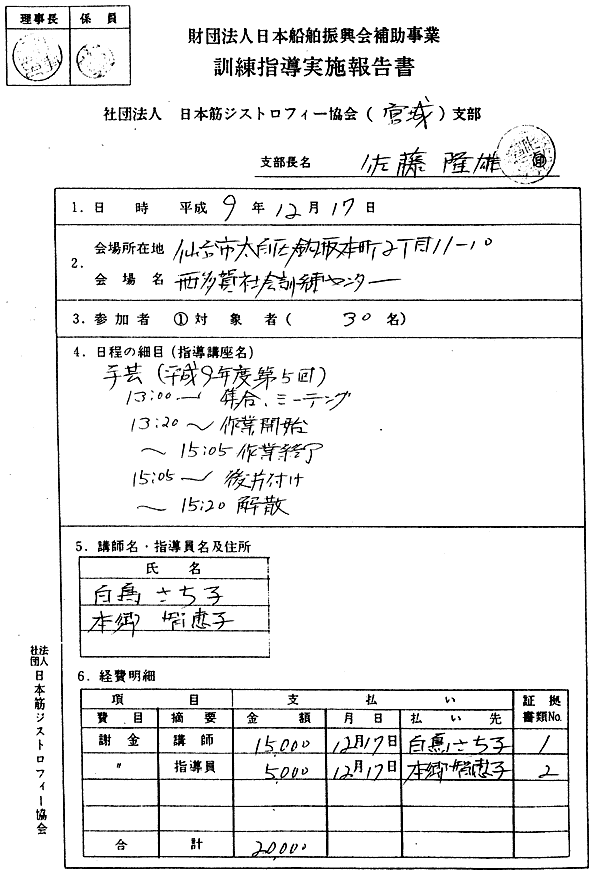 理事長 係員
財団法人日本船舶振興会補助事業
訓練指導実施報告書
社団法人 日本筋ジストロフィー協会（宮城）支部
支部長名 佐藤隆雄 ㊞
1．日時 平成9年12月17日
2．
会場所在地 仙台市太白区鈎取本町2丁目11-10
会場名 西多賀社会訓練センター
3．参加者 ①対象者（ 30名）
4．日程の細目（指導講座名）
手芸（平成9年度第5回）
13:00〜 集合、ミーティング
13:20〜 作業開始
〜15:05 作業終了
15:05〜 後片付け
〜15:20 解散
5．講師名・指導員名及住所
氏名
白鳥さち子
本郷智恵子
6．経費明細
項目 支払い 証拠書類No.
費目 摘要 金額 月日 払い先
謝金 講師 15,000 12月17日 白鳥さち子 1
〃 指導員 5,000 12月17日 本郷智恵子 2
合計 20,000
社団法人日本筋ジストロフィー協会